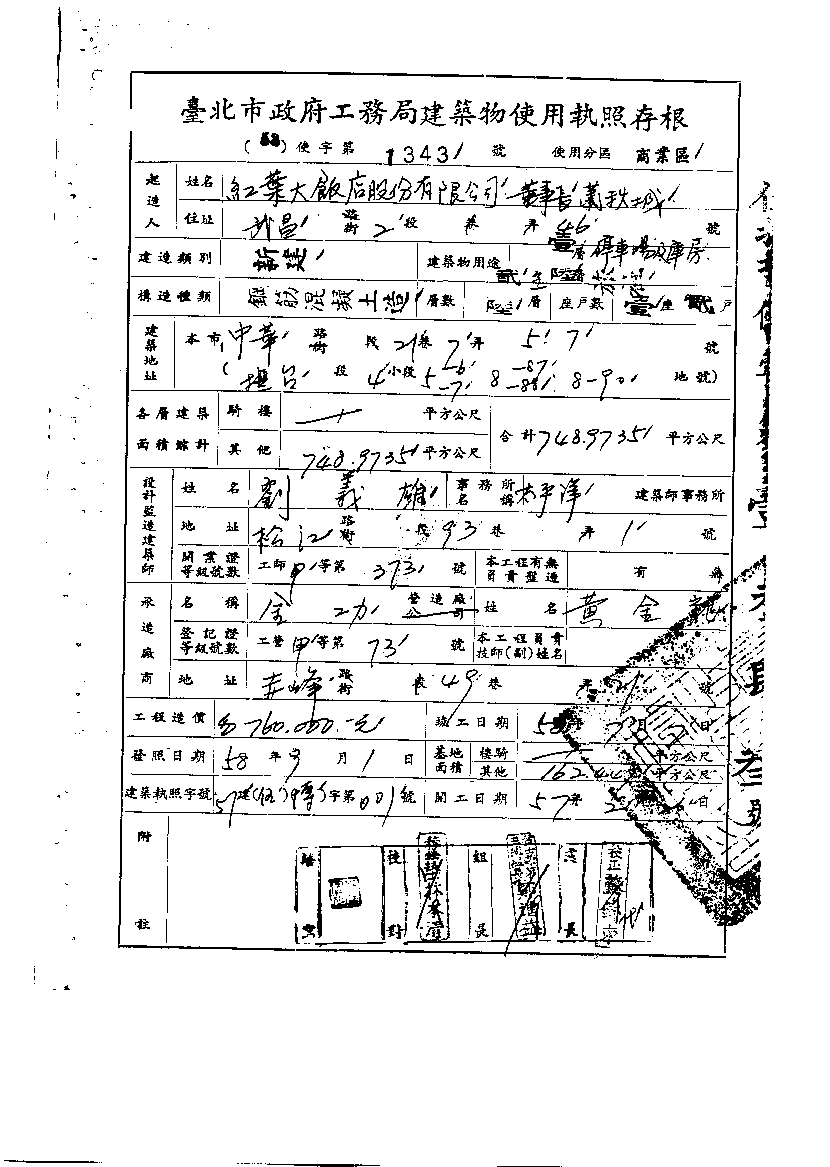 臺北市政府工務局建築物使用執照存根
(58)使字第 1343 號 使用分區 商業區
起造人 姓名 紅葉大飯店股份有限公司 董事長 蕭 城
住址 武昌 路街 2 段 巷 弄 46 號
建造類別 新建 建築物用途 壹層停車場及庫房
貳至陸
構造種類 鋼筋混凝土造 層數 陸 層 座戶數 壹 座 貳 戶
建築地址 本市 中華 路街 段 21 巷 7 弄 5 7 號
( 撫台 段 4 小段 5-6 5-7 8-87 8-88 8-90 地號)
各層建築面積總計 騎樓 平方公尺 合計 748.9735 平方公尺
其他 748.9735 平方公尺
設計監造建築師 姓名 劉義雄 事務所名稱 太平洋 建築師事務所
地址 松江 路街 段 93 巷 弄 1 號
開業證等級號數 工師 甲 等第 373 號 本工程有無負責監造 有 無
承造廠商 名稱 金功 營造廠公司 姓名 黃金
登記證等級號數 工營 甲 等第 73 號 本工程負責技師(副)姓名
地址 赤峰 路街 段 49 巷 弄 21 號
工程造價 760.000.-元 竣工日期 58 年 7 月 日
發照日期 58 年 9 月 1 日 基地面積 樓騎 平方公尺
其他 162.44 平方公尺
建築執照字號 57 建(伍) 字第 001 號 開工日期 57 年 日
附註
校對 組長